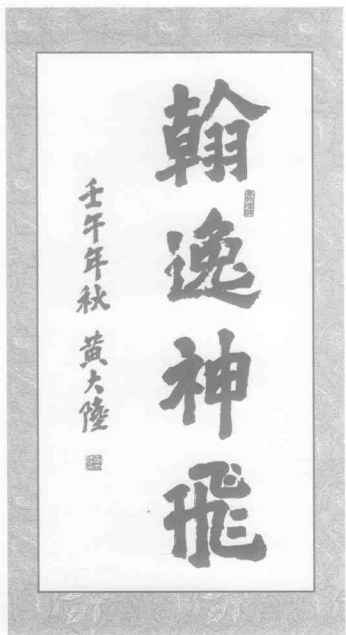 翰逸神飛
壬午年秋 黄大陸